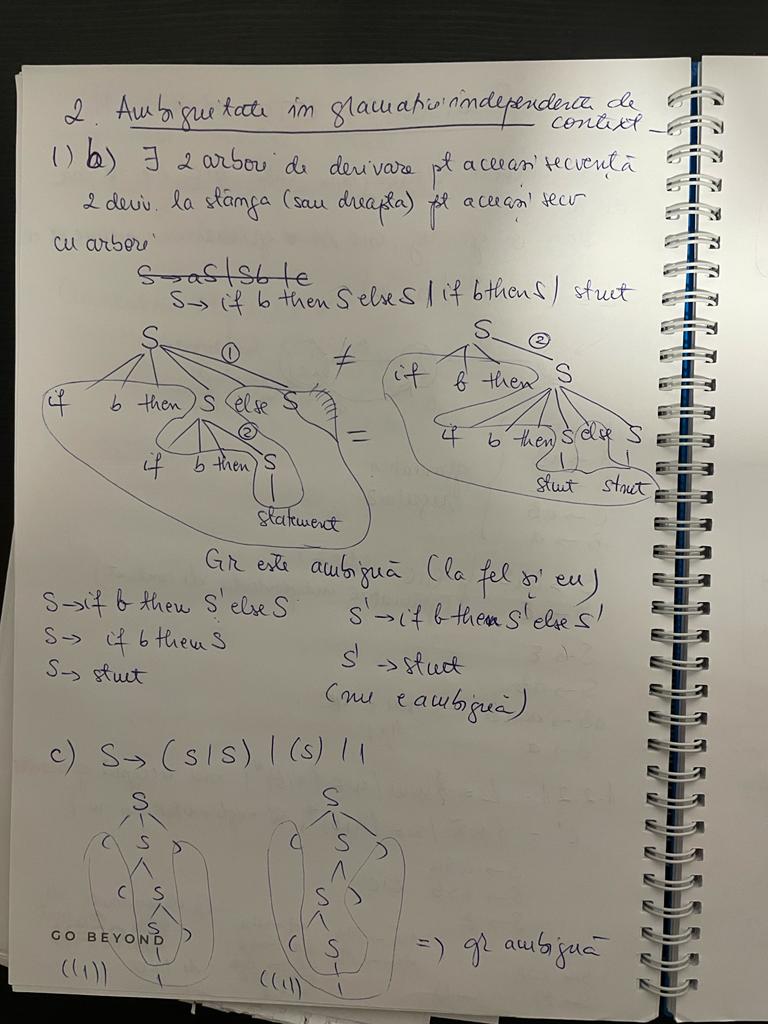 2. Ambiguitate în gramatici independente de
context
1) b) ∃ 2 arbori de derivare pt aceeași secvență
2 deriv. la stânga (sau dreapta) pt aceeași secv
cu arbori
S → aS | Sb | ε
S → if b then S else S / if b then S / stmt
S ① ≠ S ②
if b then S else S = if b then S
② if b then S else S
if b then S stmt stmt
statement
Gr este ambiguă (la fel și eu)
S → if b then S' else S S' → if b then S' else S'
S → if b then S
S' → stmt
S → stmt
(nu e ambiguă)
c) S → (S | S) | (S) | 1
S S
( S ) ( S )
( S S )
S ) ( S
GO BEYOND
1 1
((1)) ((1)) => gr ambiguă